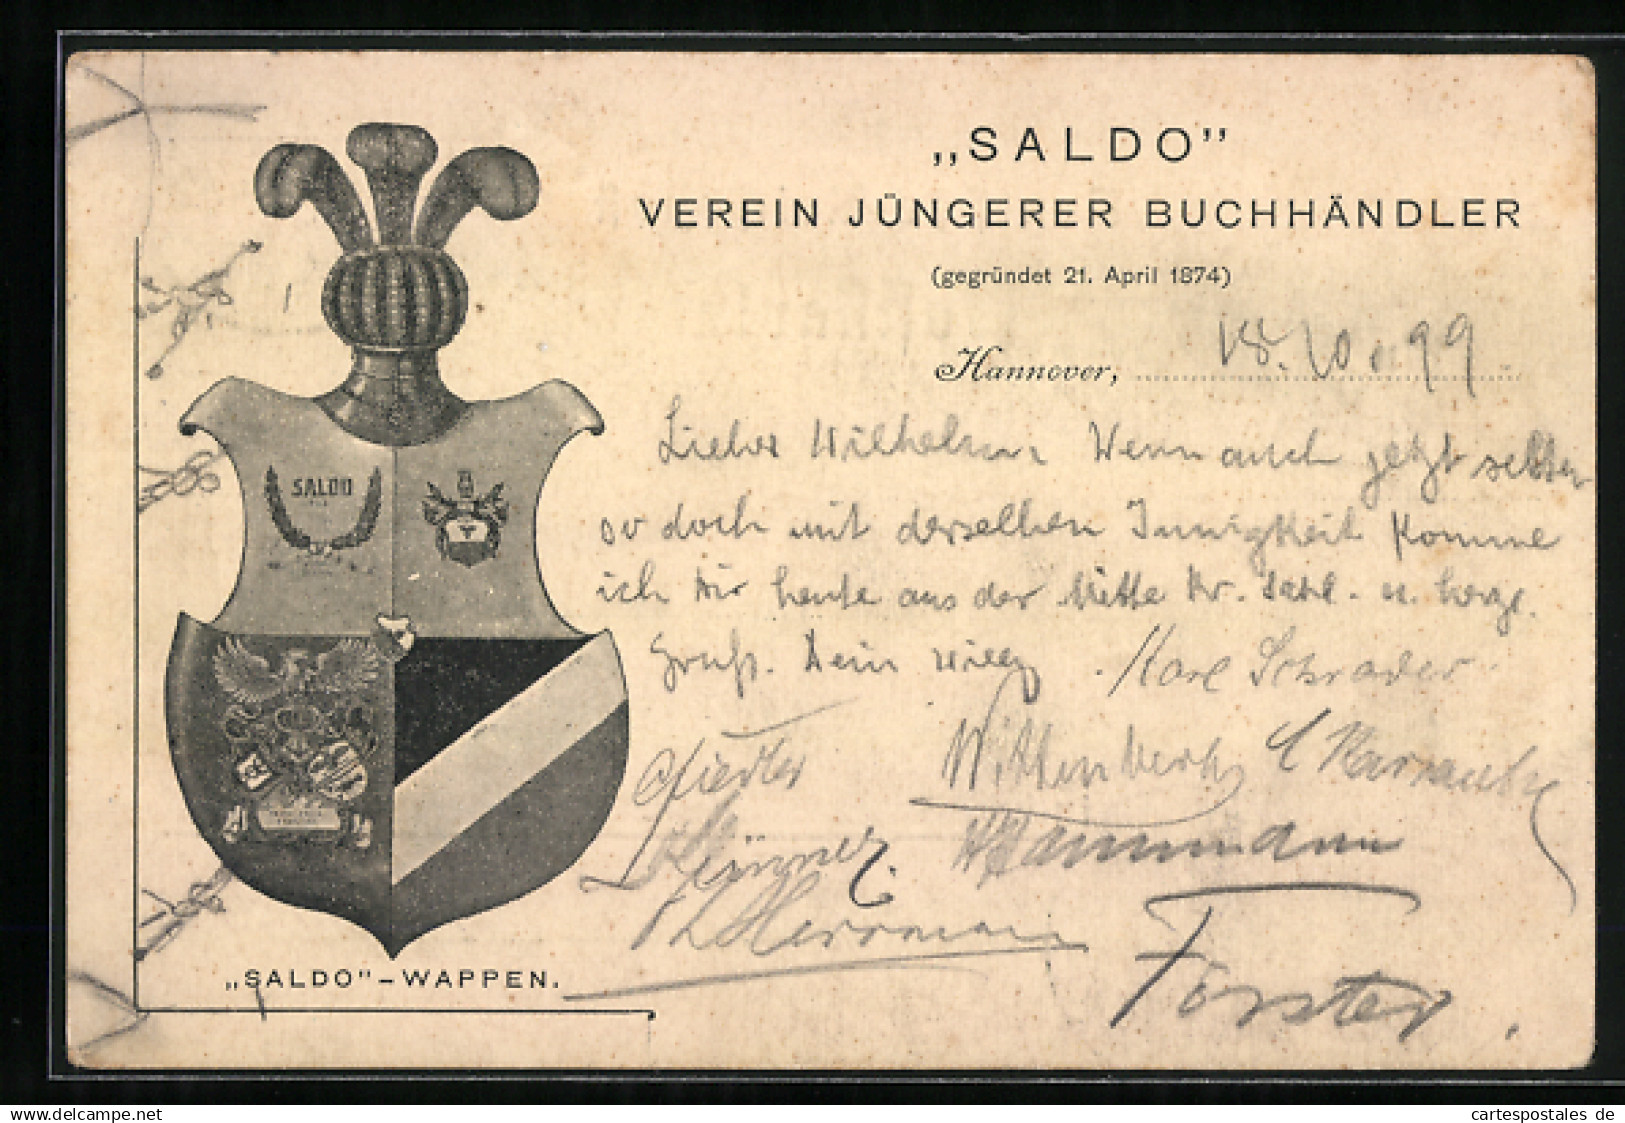 „SALDO”
VEREIN JÜNGERER BUCHHÄNDLER
(gegründet 21. April 1874)
Hannover, 18.10.99
Lieber Wilhelm, Wenn auch jetzt selten
so doch mit derselben Innigkeit komme
ich Dir heute aus der Mitte Dr. u. herzl.
Gruß. Dein Willy. Karl Schrader
Fiedler
Herrmann
Förster.
SALDO
„SALDO”–WAPPEN.
www.delcampe.net
cartespostales de